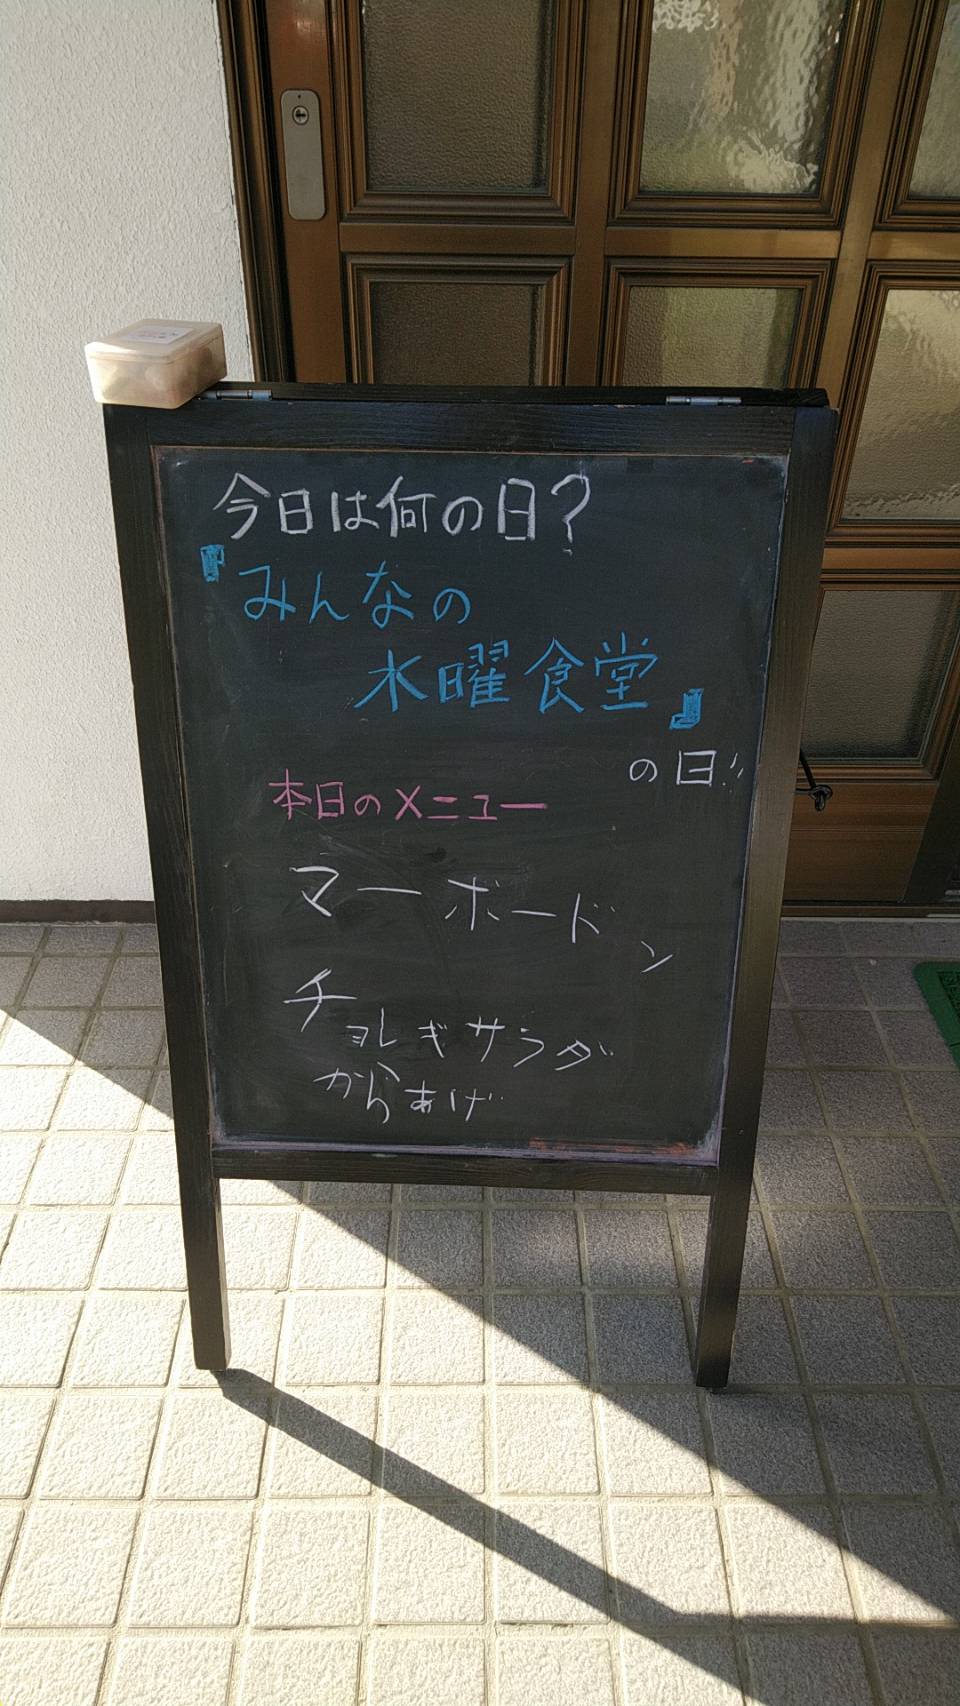 今日は何の日?
『みんなの
水曜食堂』
の日!!
本日のメニュー
マーボードン
チョレギサラダ
からあげ